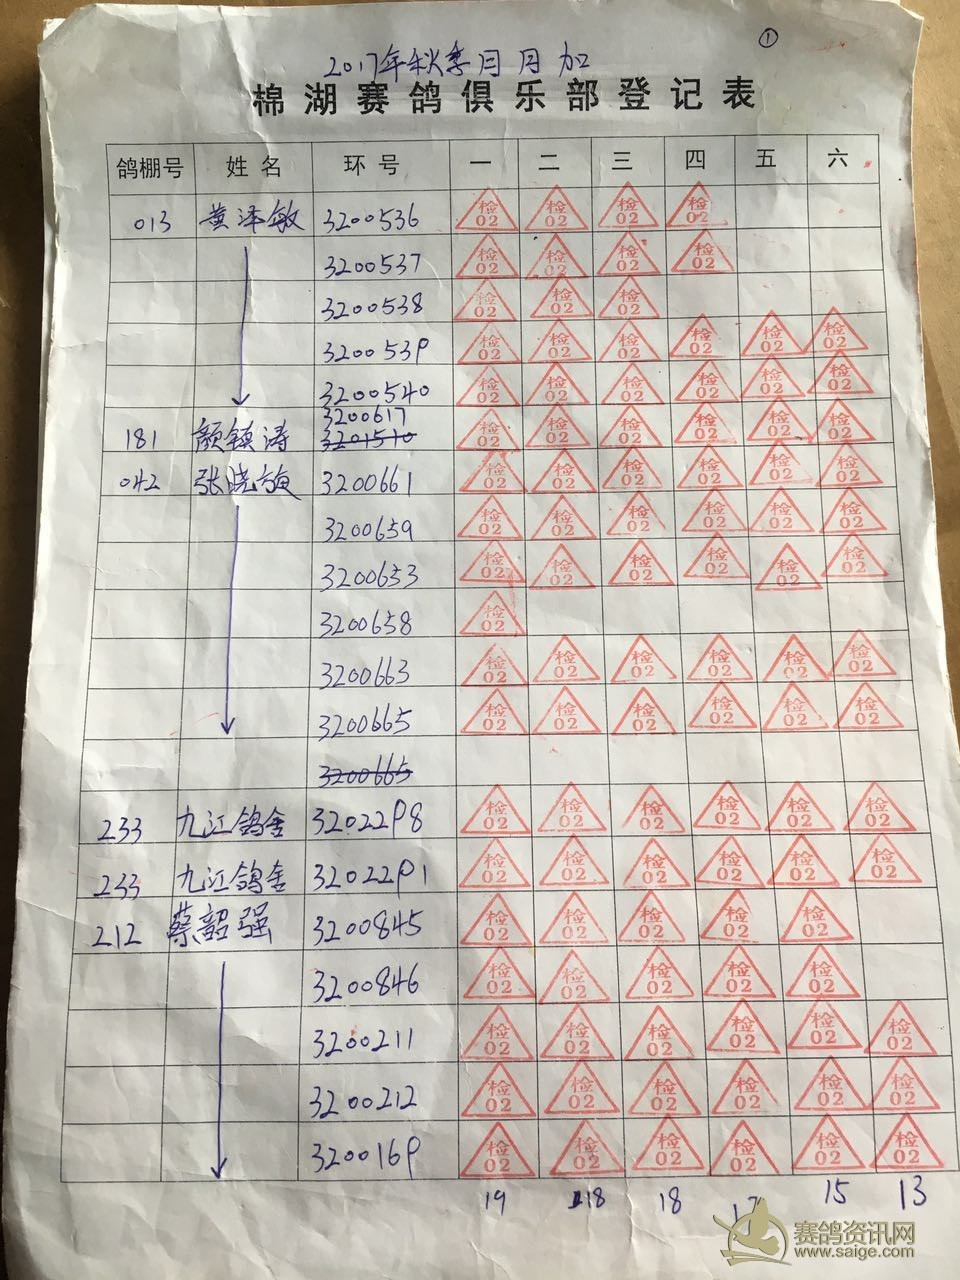 ①
2017年秋季月月加
棉湖赛鸽俱乐部登记表
鸽棚号 姓名 环号 一 二 三 四 五 六
013 黄泽敏 3200536 检02 检02 检02 检02
3200537 检02 检02 检02 检02
3200538 检02 检02 检02
3200539 检02 检02 检02 检02 检02 检02
3200540 检02 检02 检02 检02 检02 检02
3200617
181 颜镇涛 3201510 检02 检02 检02 检02 检02 检02
042 张晓 3200661 检02 检02 检02 检02 检02 检02
3200659 检02 检02 检02 检02 检02 检02
3200653 检02 检02 检02 检02 检02 检02
3200658 检02
3200663 检02 检02 检02 检02 检02 检02
3200665 检02 检02 检02 检02 检02 检02
3200665
233 九江鸽舍 3202298 检02 检02 检02 检02 检02 检02
233 九江鸽舍 3202291 检02 检02 检02 检02 检02 检02
212 蔡韶强 3200845 检02 检02 检02 检02 检02
3200846 检02 检02 检02 检02 检02
3200211 检02 检02 检02 检02 检02 检02
3200212 检02 检02 检02 检02 检02 检02
3200169 检02 检02 检02 检02 检02 检02
19 18 18 17 15 13
赛鸽资讯网
www.saige.com